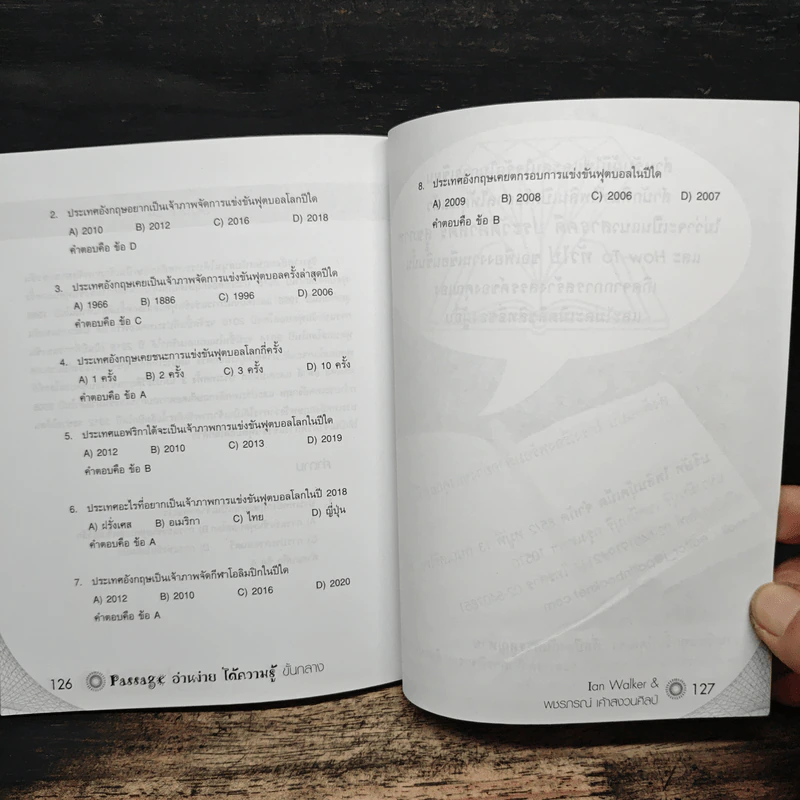 2. ประเทศอังกฤษอยากเป็นเจ้าภาพจัดการแข่งขันฟุตบอลโลกปีใด
A) 2010 B) 2012 C) 2016 D) 2018
คำตอบคือ ข้อ D
3. ประเทศอังกฤษเคยเป็นเจ้าภาพจัดการแข่งขันฟุตบอลครั้งล่าสุดปีใด
A) 1966 B) 1886 C) 1996 D) 2006
คำตอบคือ ข้อ C
4. ประเทศอังกฤษเคยชนะการแข่งขันฟุตบอลโลกกี่ครั้ง
A) 1 ครั้ง B) 2 ครั้ง C) 3 ครั้ง D) 10 ครั้ง
คำตอบคือ ข้อ A
5. ประเทศแอฟริกาใต้จะเป็นเจ้าภาพการแข่งขันฟุตบอลโลกในปีใด
A) 2012 B) 2010 C) 2013 D) 2019
คำตอบคือ ข้อ B
6. ประเทศอะไรที่อยากเป็นเจ้าภาพการแข่งขันฟุตบอลโลกในปี 2018
A) ฝรั่งเศส B) อเมริกา C) ไทย D) ญี่ปุ่น
คำตอบคือ ข้อ A
7. ประเทศอังกฤษเป็นเจ้าภาพจัดกีฬาโอลิมปิกในปีใด
A) 2012 B) 2010 C) 2016 D) 2020
คำตอบคือ ข้อ A
126 Passage อ่านง่าย ได้ความรู้ ขั้นกลาง
8. ประเทศอังกฤษเคยตกรอบการแข่งขันฟุตบอลในปีใด
A) 2009 B) 2008 C) 2006 D) 2007
คำตอบคือ ข้อ B
Ian Walker & 127
พชรภรณ์ เค้าสงวนศิลป์